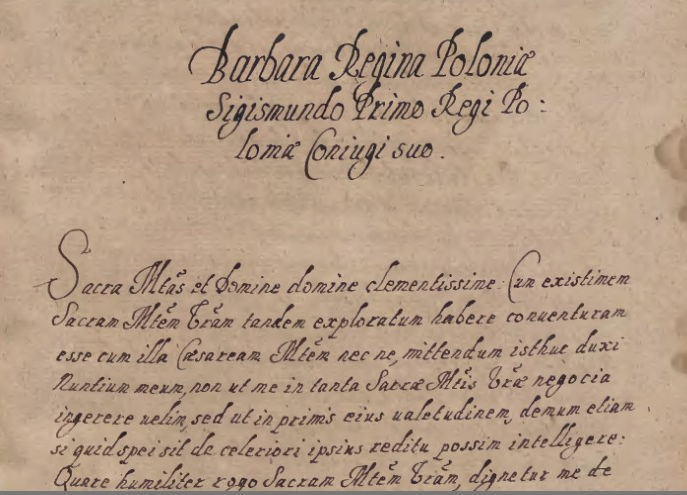 Barbara Regina Poloniæ
Sigismundo Primo Regi Po:
loniæ Coniugi suo.
Sacra Mtãs et Domine domine clementissime: Cum existimem
Sacram Mtẽm Vrãm tandem exploratum habere conuenturam
esse cum illa Cæsaream Mtẽm nec ne, mittendum isthuc duxi
Nuntium meum, non ut me in tanta Sacræ Mtis Vræ negocia
ingerere uelim, sed ut in primis eius ualetudinem, demum etiam
si quid spei sit de celeriori ipsius reditu possim intelligere:
Quare humiliter rogo Sacram Mtẽm Vrãm, dignetur me de